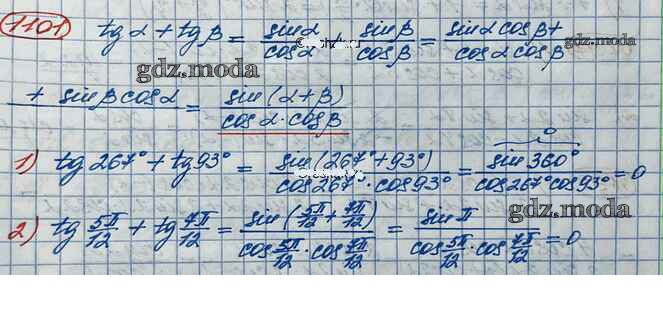 1101 tg α + tg β = sin α / cos α + sin β / cos β = sin α cos β + / cos α cos β
gdz.moda
gdz.moda
+ sin β cos α = sin (α + β) / cos α · cos β
1) tg 267° + tg 93° = sin (267° + 93°) / cos 267° · cos 93° = sin 360° / cos 267° cos 93° = 0
0
gdz.moda
2) tg 5π/12 + tg 7π/12 = sin (5π/12 + 7π/12) / cos 5π/12 · cos 7π/12 = sin π / cos 5π/12 · cos 7π/12 = 0